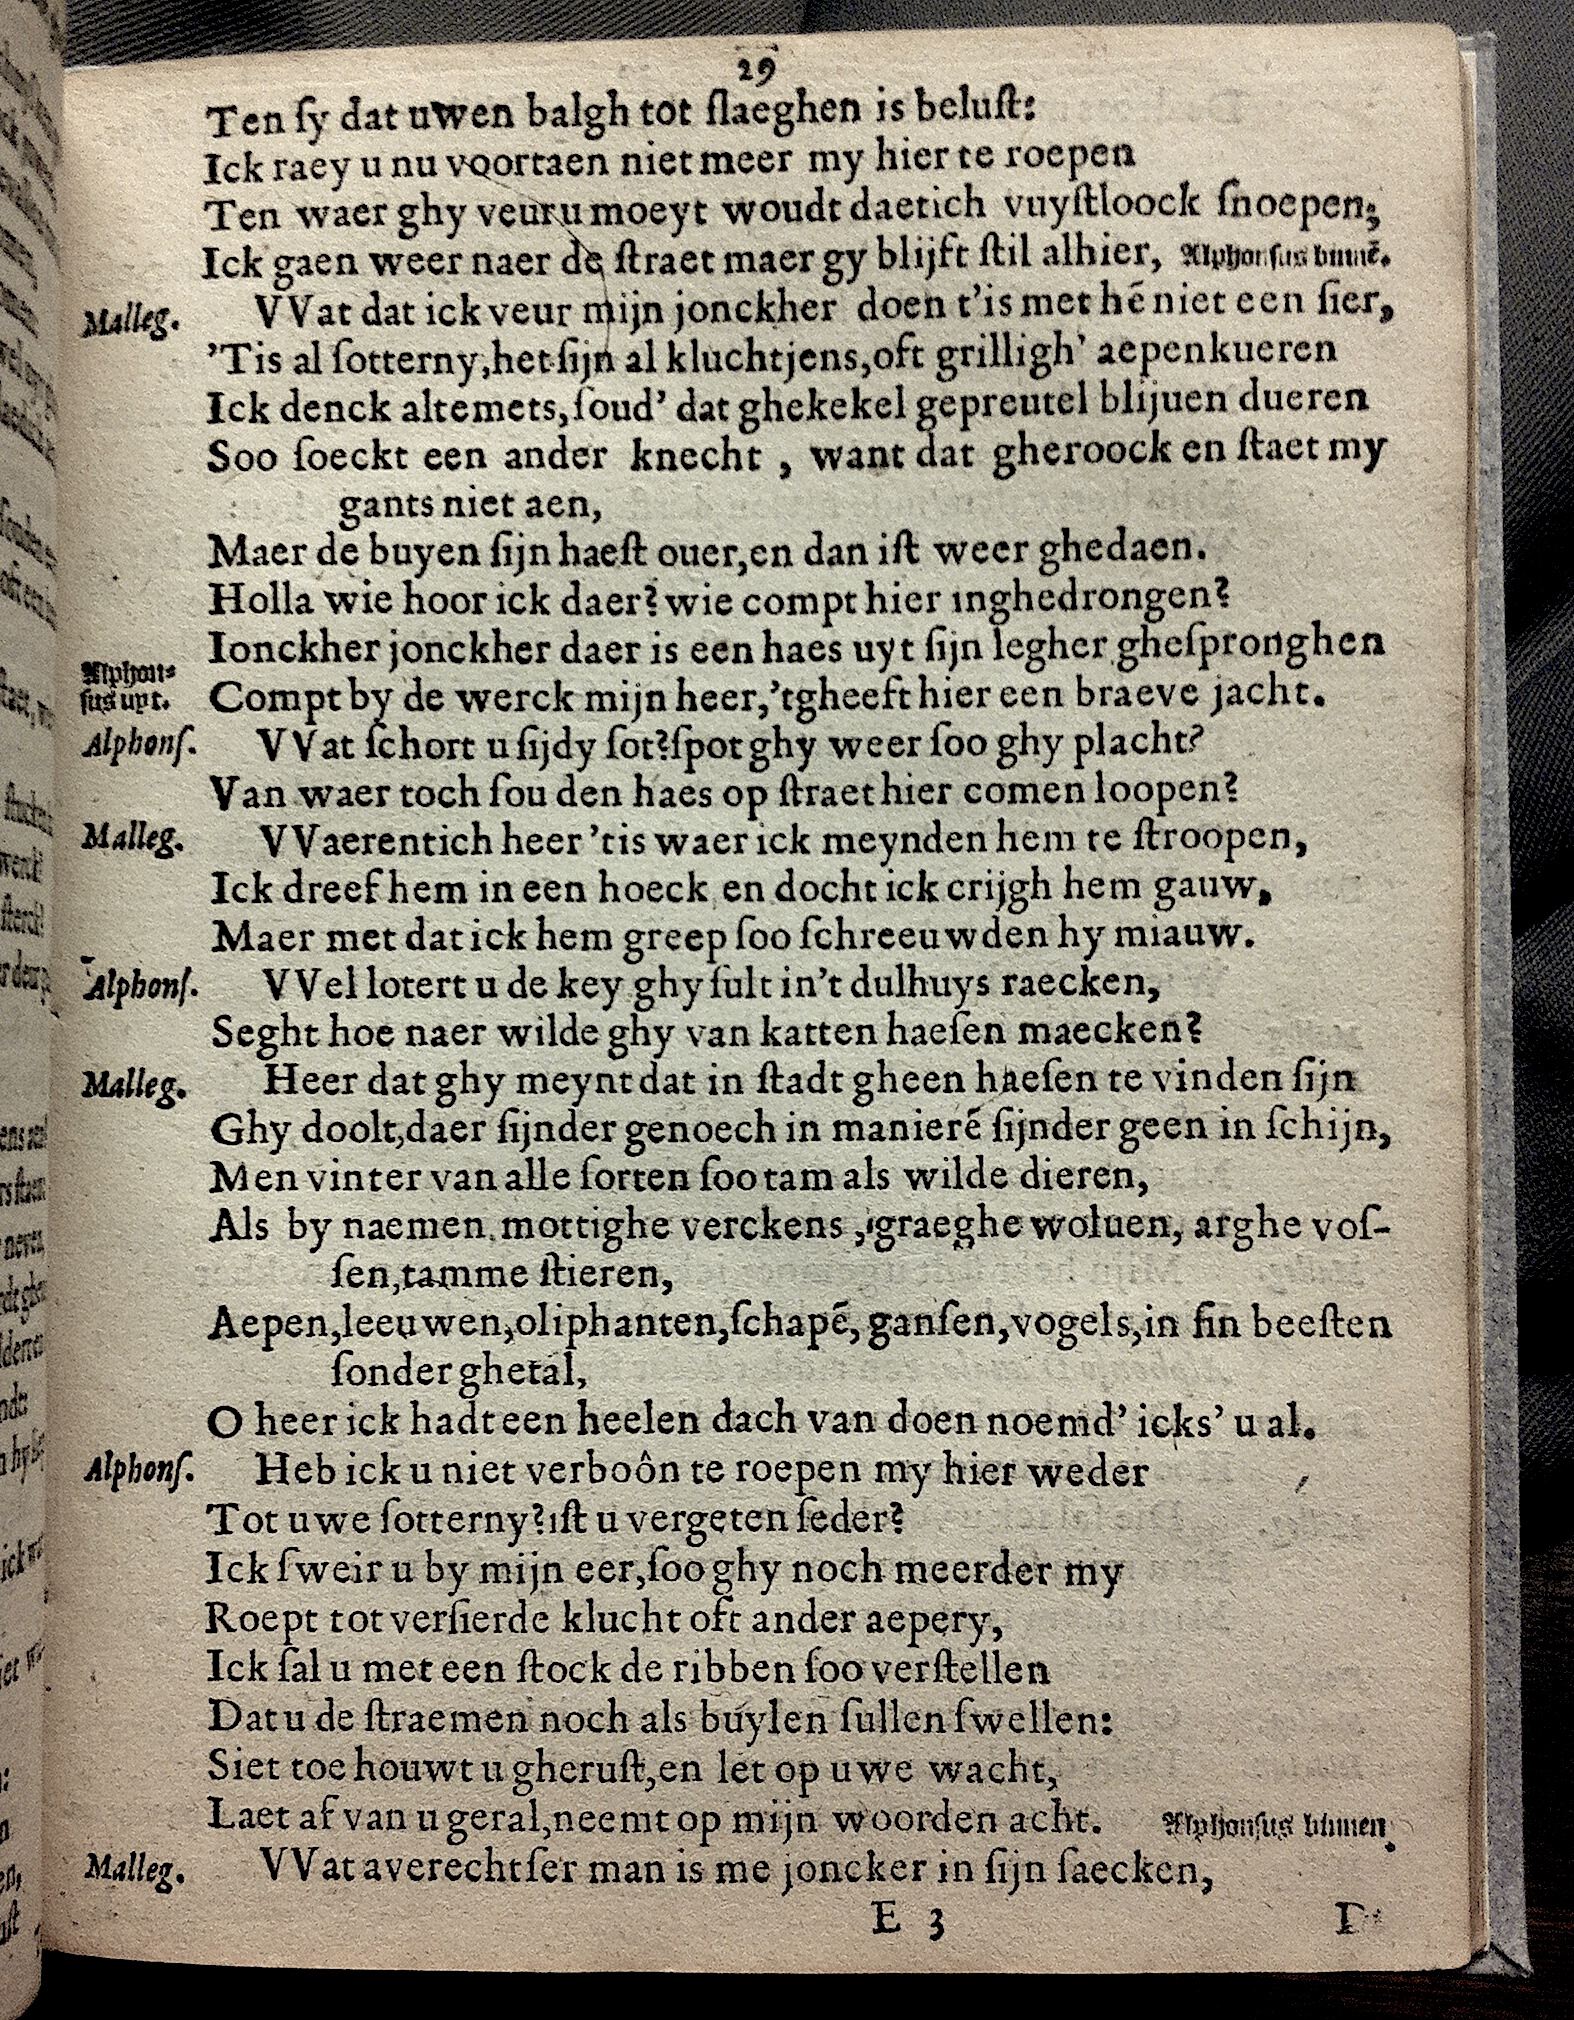 29
Ten ſy dat uwen balgh tot ſlaeghen is beluſt:
Ick raey u nu voortaen niet meer my hier te roepen
Ten waer ghy veur u moeyt woudt daetich vuyſtloock ſnoepen;
Ick gaen weer naer de ſtraet maer gy blijft ſtil alhier, Alphonſus binnē.
Malleg. VVat dat ick veur mijn jonckher doen t'is met hē niet een ſier,
'Tis al ſotterny, het ſijn al kluchtjens, oft grilligh' aepenkueren
Ick denck altemets, ſoud' dat ghekekel gepreutel blijuen dueren
Soo ſoeckt een ander knecht, want dat gheroock en ſtaet my
gants niet aen,
Maer de buyen ſijn haeſt ouer, en dan iſt weer ghedaen.
Holla wie hoor ick daer? wie compt hier inghedrongen?
Ionckher jonckher daer is een haes uyt ſijn legher gheſpronghen
Alphon-
ſus uyt. Compt by de werck mijn heer, 'tgheeft hier een braeve jacht.
Alphonſ. VVat ſchort u ſijdy ſot? ſpot ghy weer ſoo ghy placht?
Van waer toch ſou den haes op ſtraet hier comen loopen?
Malleg. VVaerentich heer 'tis waer ick meynden hem te ſtroopen,
Ick dreef hem in een hoeck en docht ick crijgh hem gauw,
Maer met dat ick hem greep ſoo ſchreeuwden hy miauw.
Alphonſ. VVel lotert u de key ghy ſult in't dulhuys raecken,
Seght hoe naer wilde ghy van katten haeſen maecken?
Malleg. Heer dat ghy meynt dat in ſtadt gheen haeſen te vinden ſijn
Ghy doolt, daer ſijnder genoech in manierē ſijnder geen in ſchijn,
Men vinter van alle ſorten ſoo tam als wilde dieren,
Als by naemen mottighe verckens, graeghe woluen, arghe voſ-
ſen, tamme ſtieren,
Aepen, leeuwen, oliphanten, ſchapē, ganſen, vogels, in fin beeſten
ſonder ghetal,
O heer ick hadt een heelen dach van doen noemd' icks' u al.
Alphonſ. Heb ick u niet verboôn te roepen my hier weder
Tot uwe ſotterny? iſt u vergeten ſeder?
Ick ſweir u by mijn eer, ſoo ghy noch meerder my
Roept tot verſierde klucht oft ander aepery,
Ick ſal u met een ſtock de ribben ſoo verſtellen
Dat u de ſtraemen noch als buylen ſullen ſwellen:
Siet toe houwt u gheruſt, en let op uwe wacht,
Laet af van u geral, neemt op mijn woorden acht. Alphonſus binnen.
Malleg. VVat averechtſer man is me joncker in ſijn ſaecken,
E 3